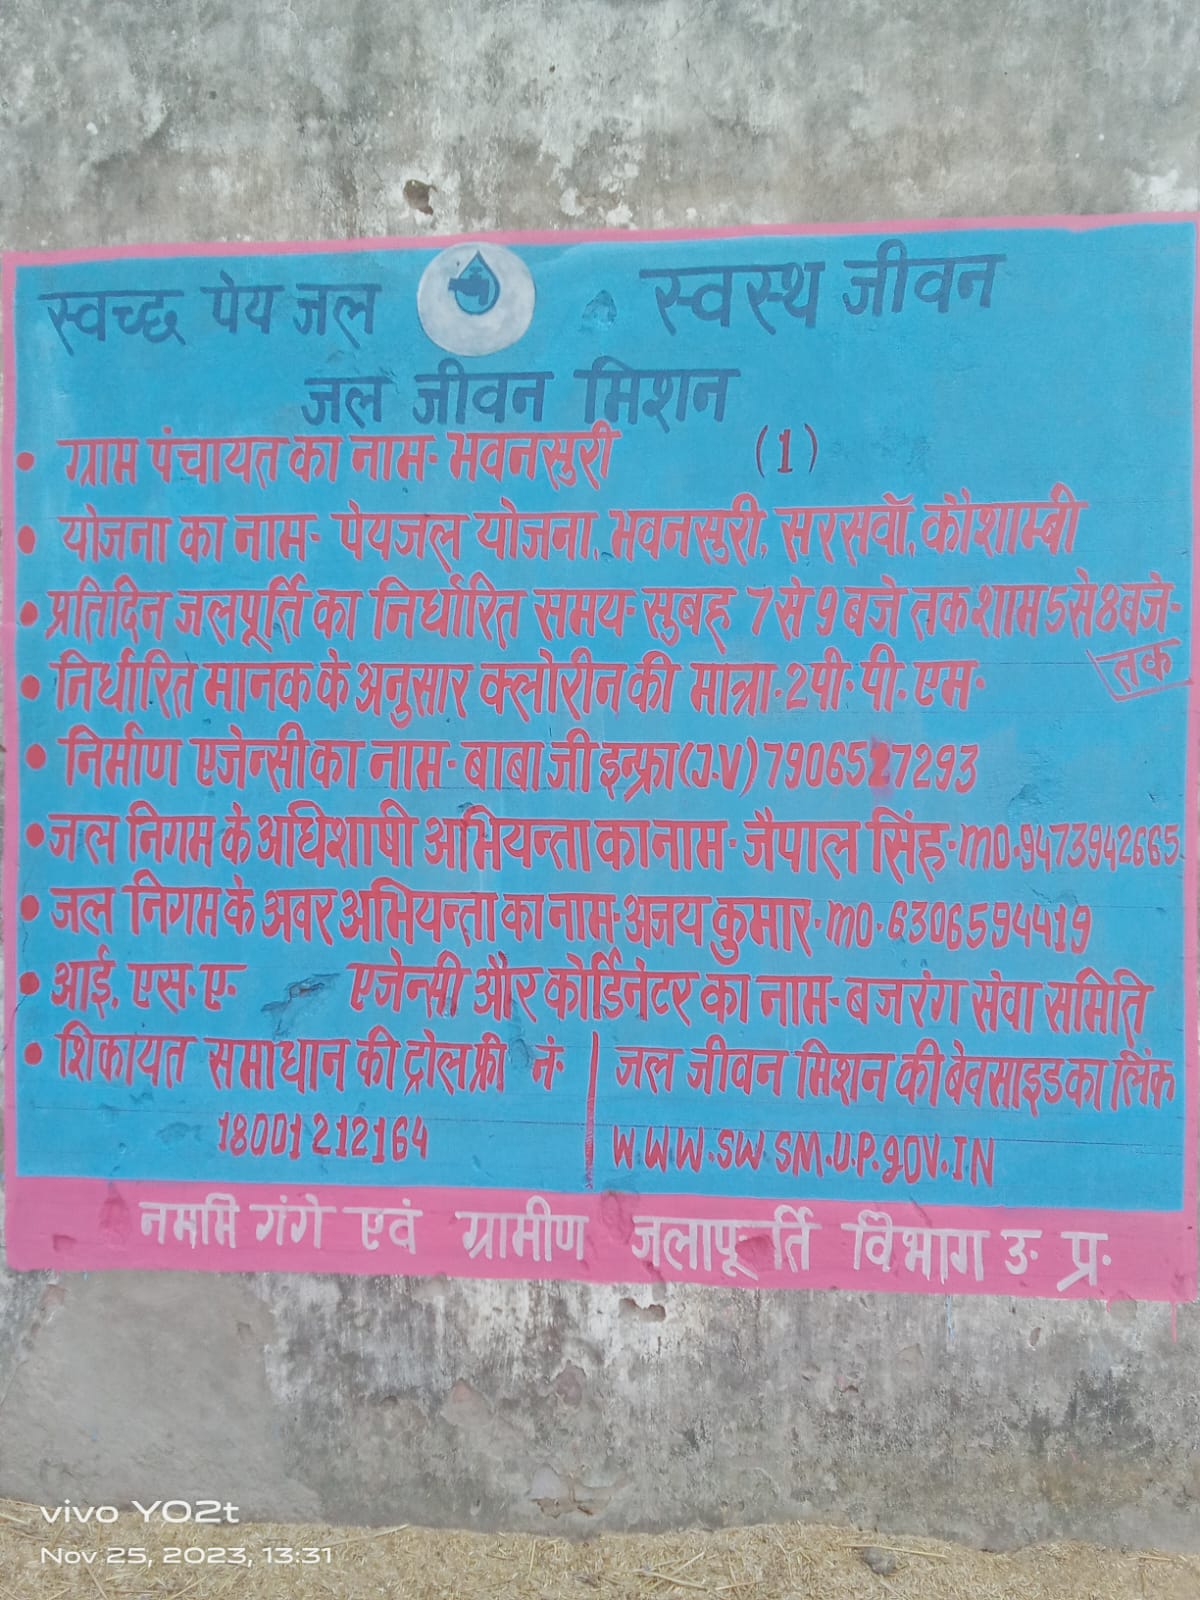 स्वच्छ पेय जल स्वस्थ जीवन
जल जीवन मिशन
• ग्राम पंचायत का नाम- भवनसुरी (1)
• योजना का नाम- पेयजल योजना, भवनसुरी, सरसवॉ, कौशाम्बी
• प्रतिदिन जलपूर्ति का निर्धारित समय- सुबह 7 से 9 बजे तक शाम 5 से 8 बजे-
तक
• निर्धारित मानक के अनुसार क्लोरीन की मात्रा- 2 पी. पी. एम.
• निर्माण एजेन्सी का नाम- बाबा जी इन्फ्रा (J.V) 7906527293
• जल निगम के अधिशाषी अभियन्ता का नाम- जैपाल सिंह- mo.9473942665.
• जल निगम के अवर अभियन्ता का नाम- अजय कुमार- mo. 6306594419
• आई. एस. ए. एजेन्सी और कोर्डिनेटर का नाम- बजरंग सेवा समिति
• शिकायत समाधान की ट्रोल फ्री नं. जल जीवन मिशन की बेवसाइड का लिंक
18001212164 WWW.SWSM.U.P.gOV.IN
नमामि गंगे एवं ग्रामीण जलापूर्ति विभाग उ. प्र.
vivo Y02t
Nov 25, 2023, 13:31